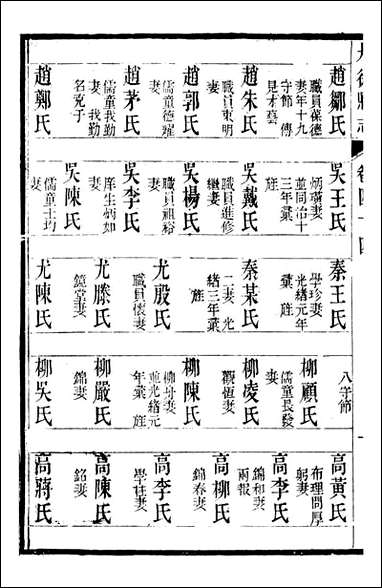 縣志
卷四十四
趙鄒氏
職員保德
妻年十九
守節 傳
見才藝
趙朱氏
職員東明
妻
趙郭氏
儒童德耀
妻
趙茅氏
儒童我勤
妻 我勤
名克子
趙鄭氏
吳王氏
炳璜妻
並同治十
三年彙
吳戴氏
職員進修
繼妻
吳楊氏
職員祖裕
妻
吳李氏
庠生炳如
妻
吳陳氏
儒童士均
妻
秦王氏
學珍妻
光緒元年
彙 旌
秦某氏
二妻 光
緒三年彙
旌
尤殷氏
職員懷妻
尤滕氏
鏡堂妻
尤陳氏
八守節
柳顧氏
儒童長發
妻
柳凌氏
觀恆妻
柳陳氏
柳舟妻
並光緒元
年彙 旌
柳嚴氏
錦妻
柳吳氏
高黃氏
布理問厚
躬妻
高李氏
錦和妻
兩報
高柳氏
錦春妻
高李氏
妻
高陳氏
銘妻
高蔣氏